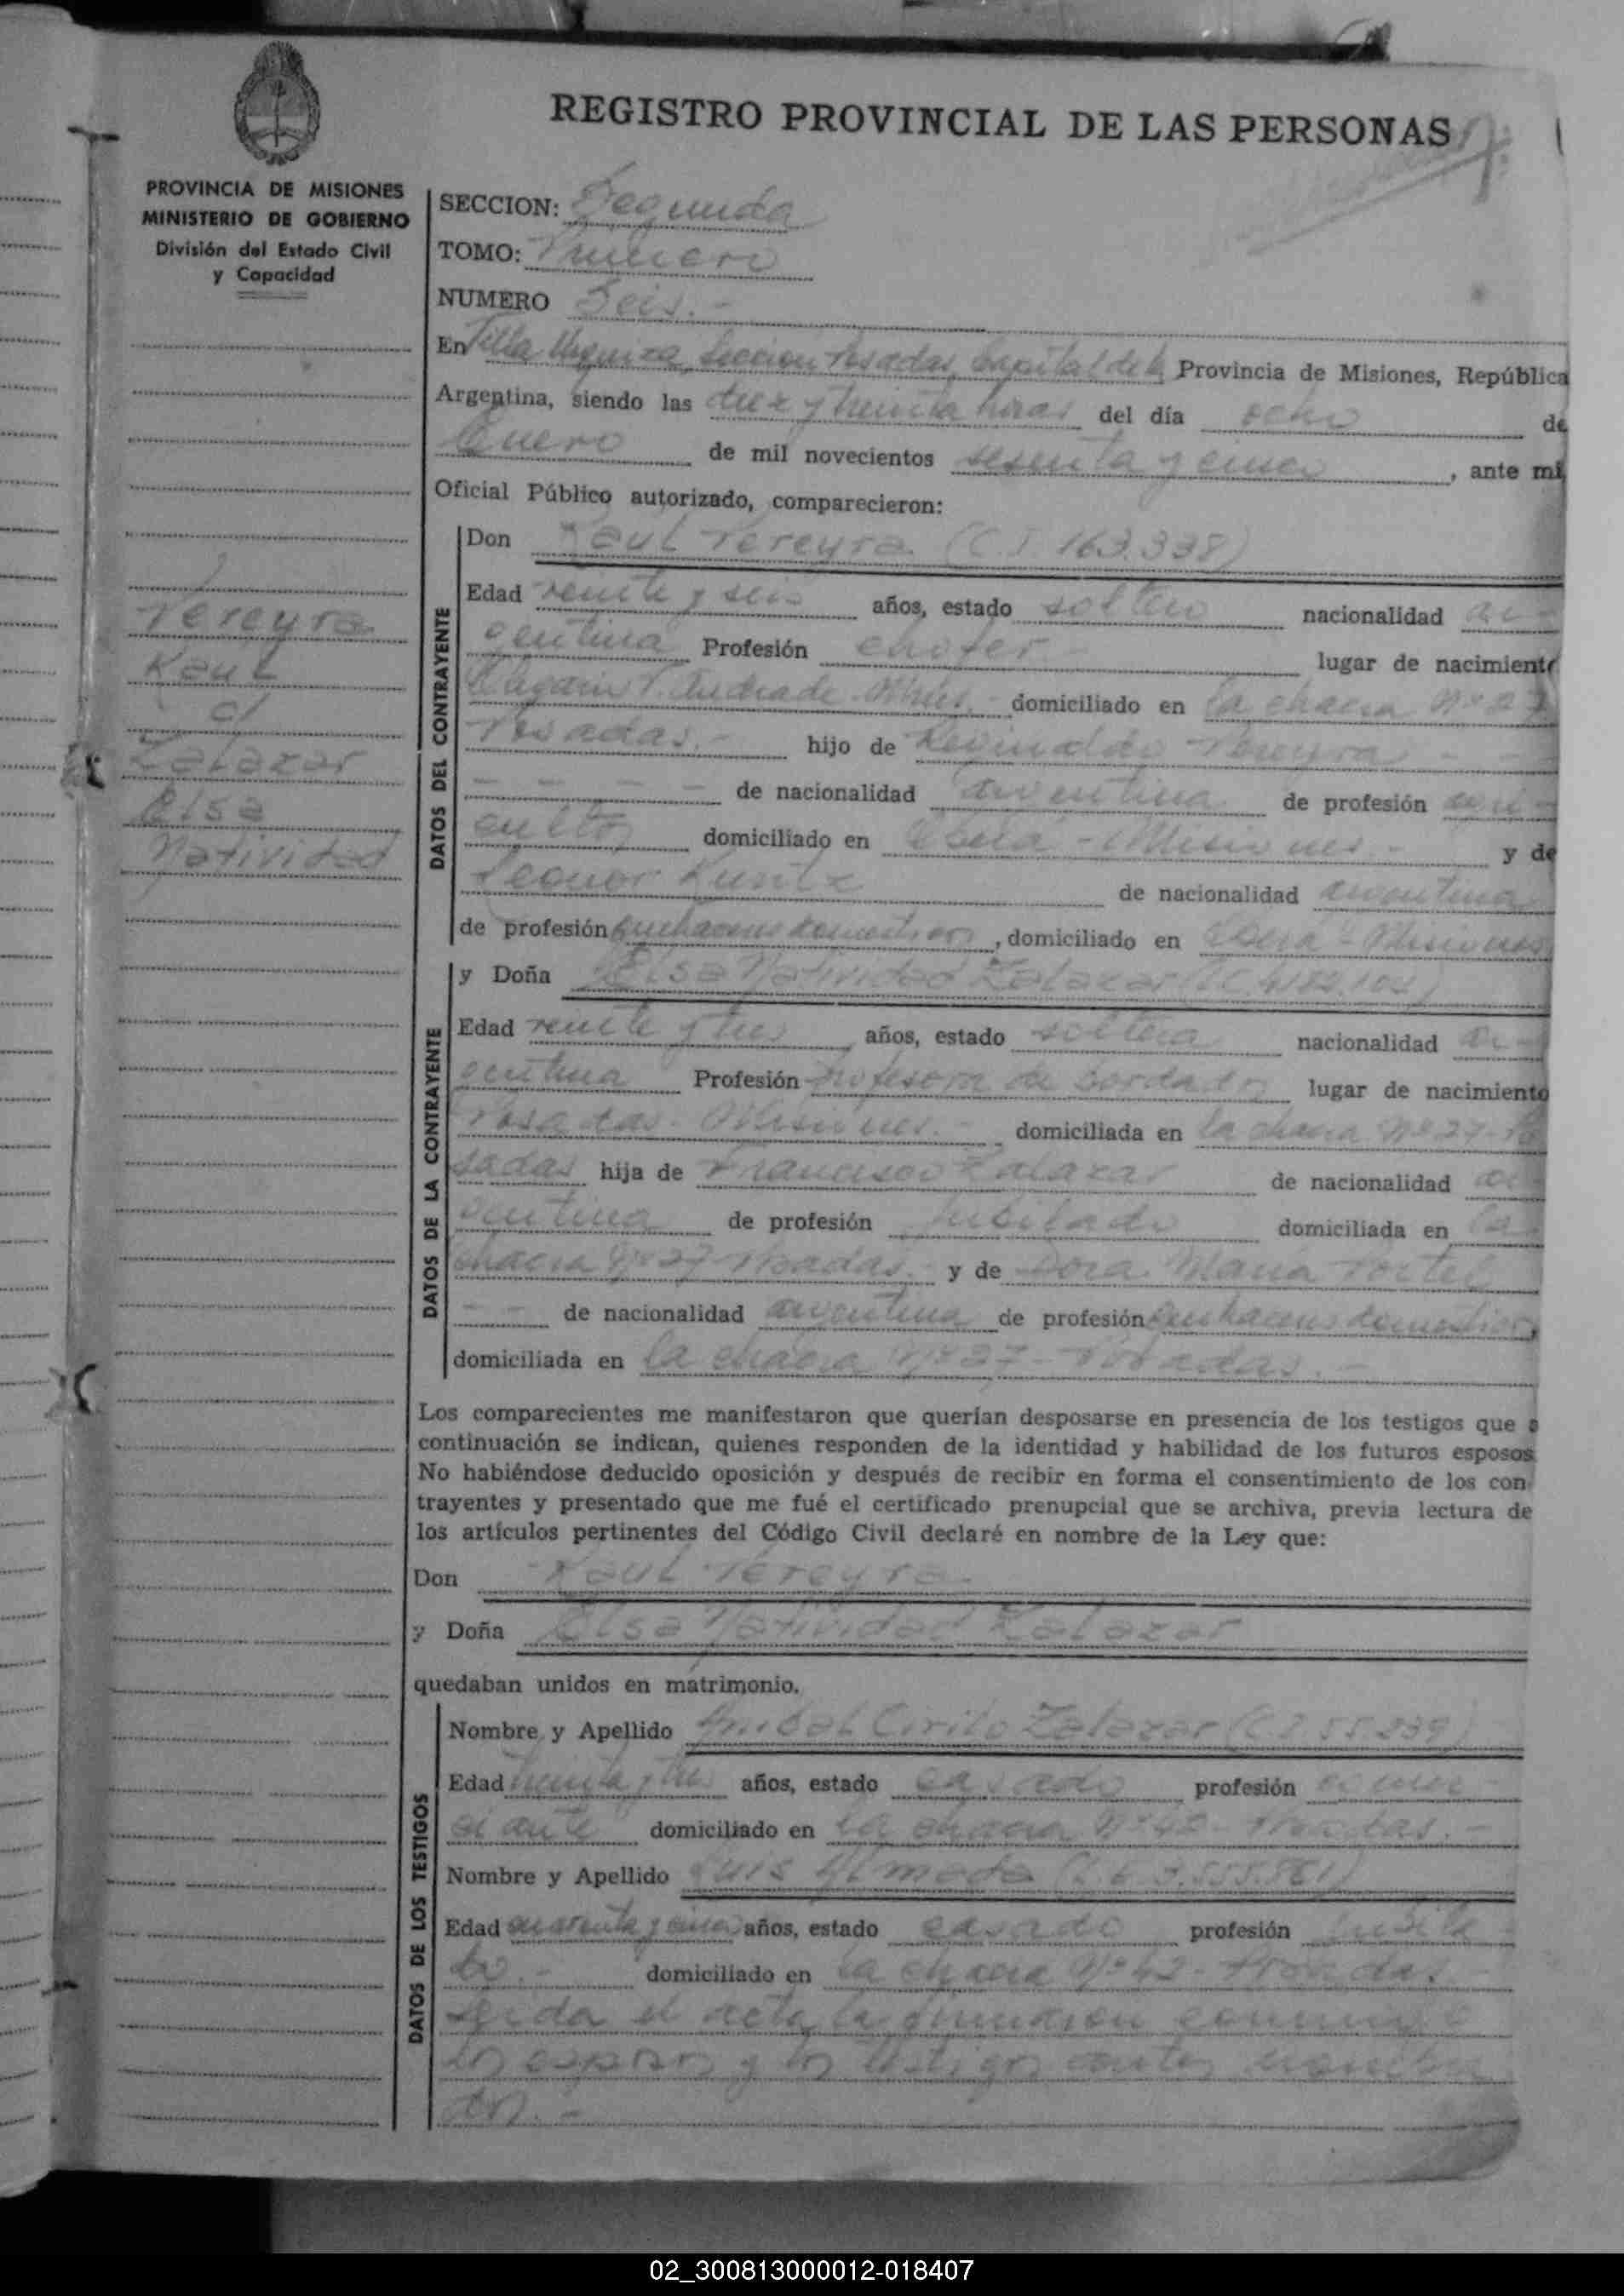 REGISTRO PROVINCIAL DE LAS PERSONAS
PROVINCIA DE MISIONES
MINISTERIO DE GOBIERNO
División del Estado Civil
y Capacidad
Pereyra
Raul
c/
Zalazar
Elsa
Natividad
SECCION: Segunda
TOMO: Primero
NUMERO Seis.-
En Villa Urquiza, Seccion Posadas, Capital de la Provincia de Misiones, República
Argentina, siendo las diez y treinta horas del día ocho de
Enero de mil novecientos sesenta y cinco, ante mí,
Oficial Público autorizado, comparecieron:
DATOS DEL CONTRAYENTE
Don Raul Pereyra (C.I 163.338)
Edad veinte y seis años, estado soltero nacionalidad ar-
gentina Profesión chofer.- lugar de nacimiento
Andrade domiciliado en la chacra Nº 27
Posadas.- hijo de Reginaldo Pereyra - -
- - - - de nacionalidad argentina de profesión agri-
cultor domiciliado en Oberá - Misiones.- y de
Leonor Kuntz de nacionalidad argentina
de profesión quehaceres domesticos, domiciliado en Oberá - Misiones
DATOS DE LA CONTRAYENTE
y Doña Elsa Natividad Zalazar
Edad veinte y tres años, estado soltera nacionalidad ar-
gentina Profesión profesora de bordado lugar de nacimiento
Posadas - Misiones.- domiciliada en la chacra Nº 27 - Po
sadas hija de Francisco Zalazar de nacionalidad ar-
gentina de profesión jubilado domiciliada en la
chacra Nº 27 Posadas.- y de Dora Maria
- - de nacionalidad argentina de profesión quehaceres domesticos,
domiciliada en la chacra Nº 27 - Posadas.-
Los comparecientes me manifestaron que querían desposarse en presencia de los testigos que a
continuación se indican, quienes responden de la identidad y habilidad de los futuros esposos.
No habiéndose deducido oposición y después de recibir en forma el consentimiento de los con-
trayentes y presentado que me fué el certificado prenupcial que se archiva, previa lectura de
los artículos pertinentes del Código Civil declaré en nombre de la Ley que:
Don Raul Pereyra
y Doña Elsa Natividad Zalazar
quedaban unidos en matrimonio.
DATOS DE LOS TESTIGOS
Nombre y Apellido Anibal Cirilo Zalazar (C I 55.239)
Edad treinta y tres años, estado casado profesión comer-
ciante domiciliado en la chacra Nº 42 - Posadas.-
Nombre y Apellido Luis Almada (L.E 3.555.861)
Edad cuarenta y cinco años, estado casado profesión jubila-
do.- domiciliado en la chacra Nº 42 - Posadas.
Leida el acta la firmaron conmigo
los esposos y los testigos antes nombra
dos.-
02_300813000012-018407